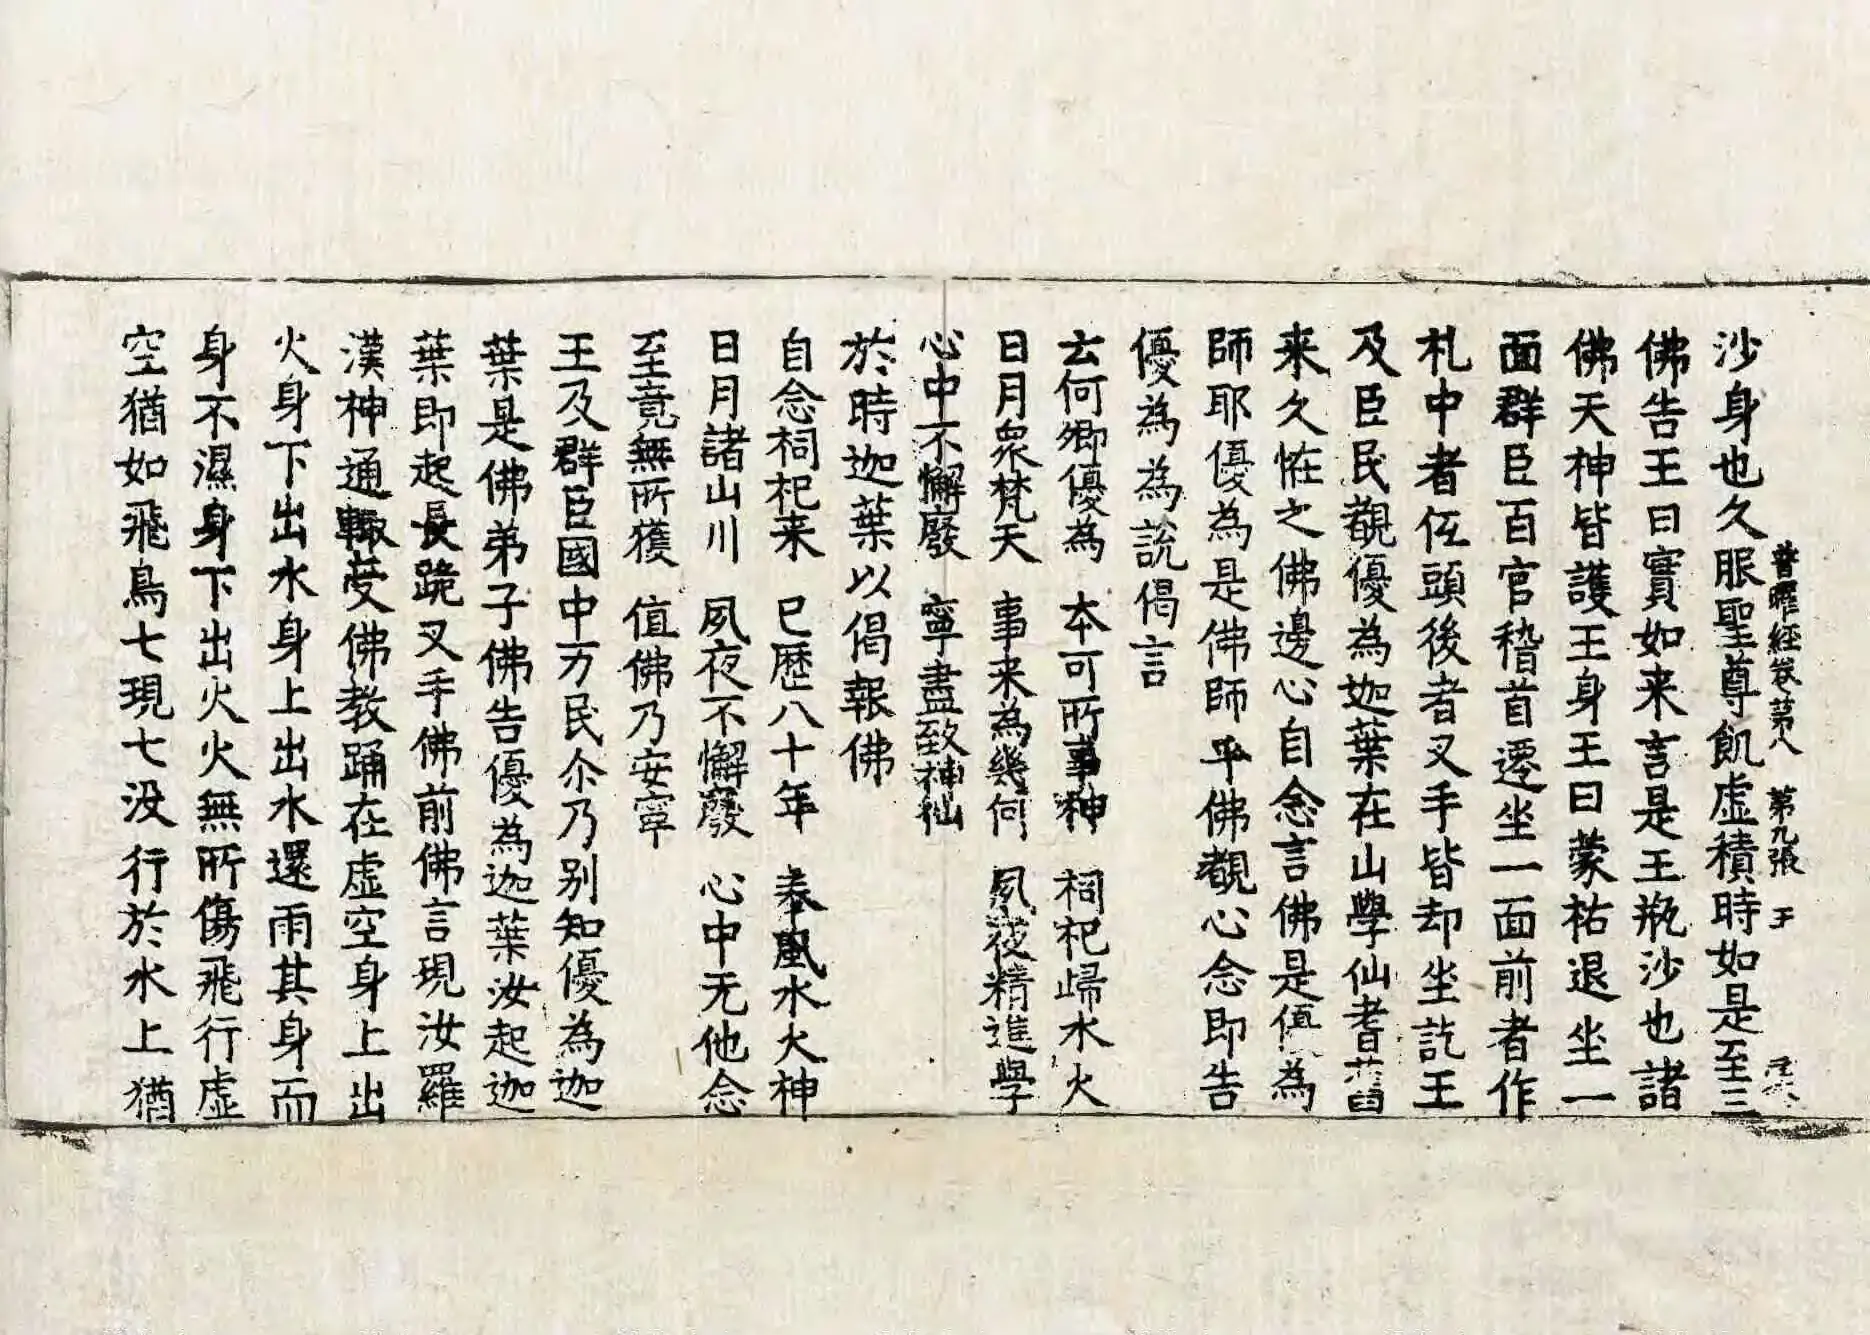 普曜經卷第八 第九張 王
沙身也久服聖尊飢虛積時如是至三
佛告王曰實如来言是王瓶沙也諸
佛天神皆護王身王曰蒙祐退坐一
面群臣百官稽首遷坐一面前者作
礼中者低頭後者叉手皆却坐訖王
及臣民覩優為迦葉在山學仙耆舊
来久恠之佛邊心自念言佛是優為
師耶優為是佛師乎佛覩心念即告
優為為說偈言
云何卿優為 本可所事神 祠祀歸水火
日月衆梵天 事来為幾何 夙夜精進學
心中不懈廢 寧盡致神仙
於時迦葉以偈報佛
自念祠祀来 已歷八十年 奉風水火神
日月諸山川 夙夜不懈廢 心中无他念
至竟無所獲 值佛乃安寧
王及群臣國中万民尒乃别知優為迦
葉是佛弟子佛告優為迦葉汝起迦
葉即起長跪叉手佛前佛言現汝羅
漢神通輙受佛教踊在虛空身上出
火身下出水身上出水還雨其身而
身不濕身下出火火無所傷飛行虛
空猶如飛鳥七現七没行於水上猶